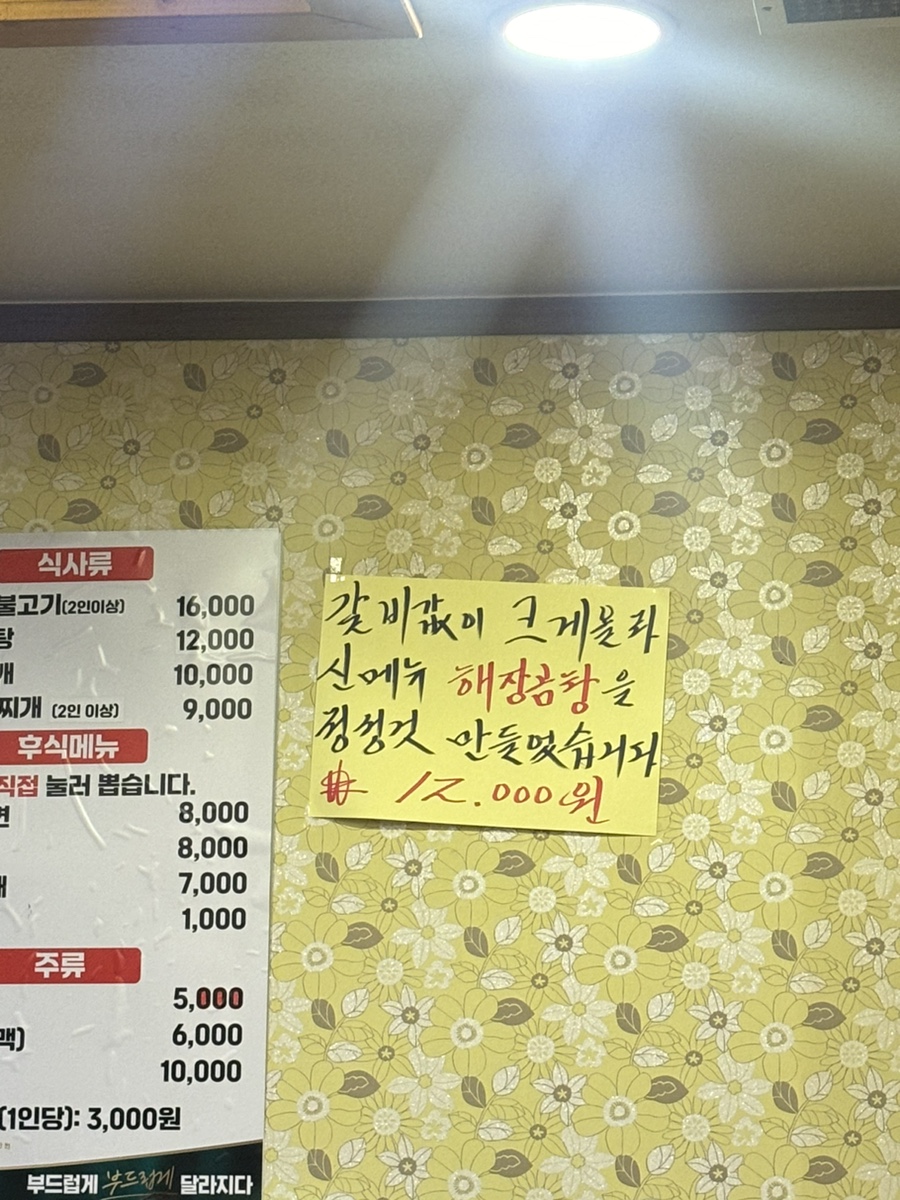 식사류
불고기(2인이상) 16,000
탕 12,000
개 10,000
찌개 (2인 이상) 9,000
후식메뉴
직접 눌러 뽑습니다.
면 8,000
8,000
7,000
1,000
주류
5,000
맥) 6,000
10,000
(1인당): 3,000원
부드럽게 부드럽게 달라지다
갈비값이 크게올라
신메뉴 해장곰탕을
정성것 만들었습니다
₩ 12.000원